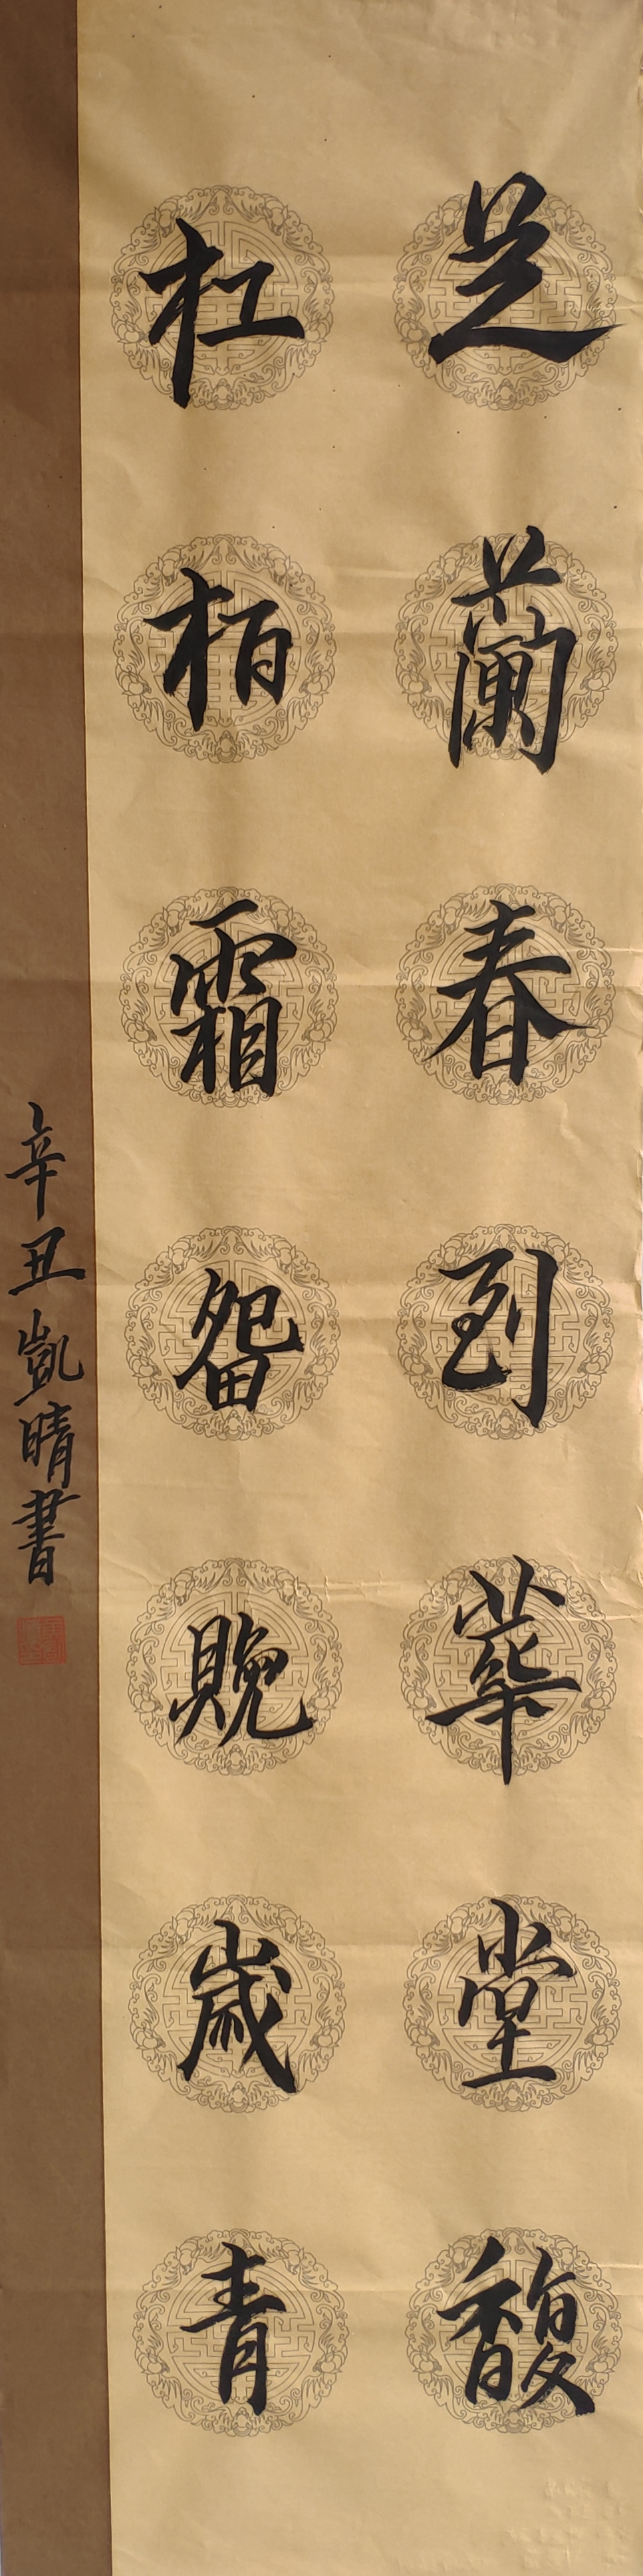 芝蘭春到華堂馥
杠柏霜留晚歲青
辛丑凱晴書